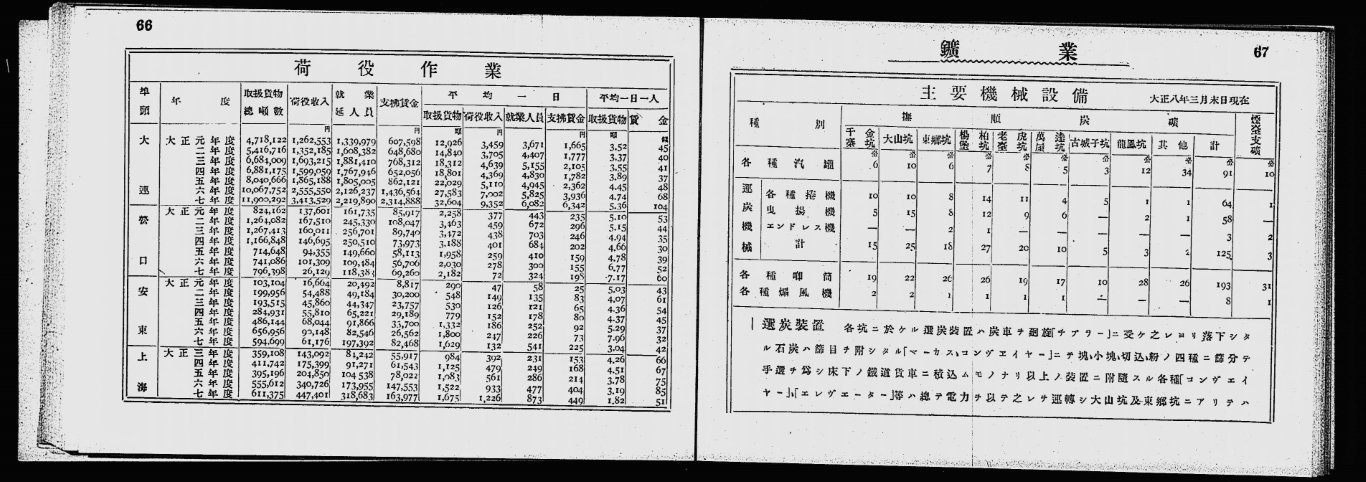 66
荷役作業
埠頭 年度 取扱貨物總噸數 荷役收入 就業延人員 支拂賃金 平均一日 平均一日一人
取扱貨物 荷役收入 就業人員 支拂賃金 取扱貨物 賃金
大連
大正元年度 4,718,122 1,262,553 1,339,979 607,598 12,926 3,459 3,671 1,665 3.52 45
二年度 5,416,716 1,352,185 1,608,382 648,680 14,840 3,705 4,407 1,777 3.37 40
三年度 6,684,009 1,693,215 1,881,410 768,312 18,312 4,639 5,155 2,105 3.55 41
四年度 6,881,175 1,599,059 1,767,946 652,056 18,801 4,369 4,830 1,782 3.89 37
五年度 8,040,666 1,865,188 1,805,005 862,121 22,029 5,110 4,945 2,362 4.45 48
六年度 10,067,752 2,555,550 2,126,237 1,436,564 27,583 7,002 5,825 3,936 4.74 68
七年度 11,900,292 3,413,529 2,219,890 2,314,888 32,604 9,352 6,082 6,342 5.36 104
營口
大正元年度 824,162 137,601 161,735 85,917 2,258 377 443 235 5.10 53
二年度 1,264,082 167,510 245,330 108,047 3,463 459 672 296 5.15 44
三年度 1,267,413 160,011 256,701 89,740 3,472 438 703 246 4.94 35
四年度 1,166,848 146,695 250,510 73,973 3,188 401 684 202 4.66 30
五年度 714,648 94,355 149,660 58,113 1,958 259 410 159 4.78 39
六年度 741,086 101,309 109,484 56,706 2,030 278 300 155 6.77 52
七年度 796,398 26,129 118,383 69,260 2,182 72 324 198 7.17 60
安東
大正元年度 103,104 16,664 20,492 8,817 290 47 58 25 5.03 43
二年度 199,956 54,488 49,184 30,200 548 149 135 83 4.07 61
三年度 193,515 45,860 44,347 23,757 530 126 121 65 4.36 54
四年度 284,931 55,810 65,221 29,189 779 152 178 80 4.37 45
五年度 486,144 68,044 91,866 33,700 1,332 186 252 92 5.29 37
六年度 656,956 92,148 82,546 26,562 1,800 247 226 73 7.96 32
七年度 594,699 61,176 197,392 82,468 1,629 132 541 225 3.04 42
上海
大正三年度 359,108 143,092 81,242 55,917 984 392 231 153 4.26 66
四年度 411,742 175,399 91,271 61,543 1,125 479 249 168 4.51 67
五年度 395,196 204,850 104,538 78,022 1,083 561 286 214 3.78 75
六年度 555,612 340,726 173,955 147,553 1,522 933 477 404 3.19 85
七年度 611,375 447,401 318,683 163,977 1,675 1,226 873 449 1.82 51
鑛業
67
主要機械設備 大正八年三月末日現在
種別 撫順炭礦 煙臺支礦
千金寨坑 大山坑 東鄉坑 楊柏堡坑 老虎臺坑 萬達屋坑 古城子坑 龍鳳坑 其他 計
各種汽罐 6 10 6 7 8 5 3 12 34 91 10
運炭機械
各種捲機 10 10 8 14 11 4 5 1 1 64 1
曳揚機 5 15 8 12 9 6 — 2 1 58 —
エンドレス機 — — 2 1 — — — — — 3 2
計 15 25 18 27 20 10 5 3 2 125 3
各種喞筒 19 22 26 26 19 17 10 28 26 193 31
各種煽風機 2 2 1 1 1 1 — — — 8 1
選炭裝置 各坑ニ於ケル選炭裝置ハ炭車ヲ廻旋「チプラー」ニ受ケ之レヨリ落下シタ
ル石炭ハ篩目ヲ附シタル「マーカス」コンヴエイヤー」ニテ塊、小塊、切込、粉ノ四種ニ篩分テ
手選ヲ爲シ床下ノ鐵道貨車ニ積込ムモノナリ以上ノ裝置ニ附隨スル各種「コンヴエイ
ヤー」、「エレヴエーター」等ハ總テ電力ヲ以テ之レヲ運轉シ大山坑及東鄉坑ニアリテハ